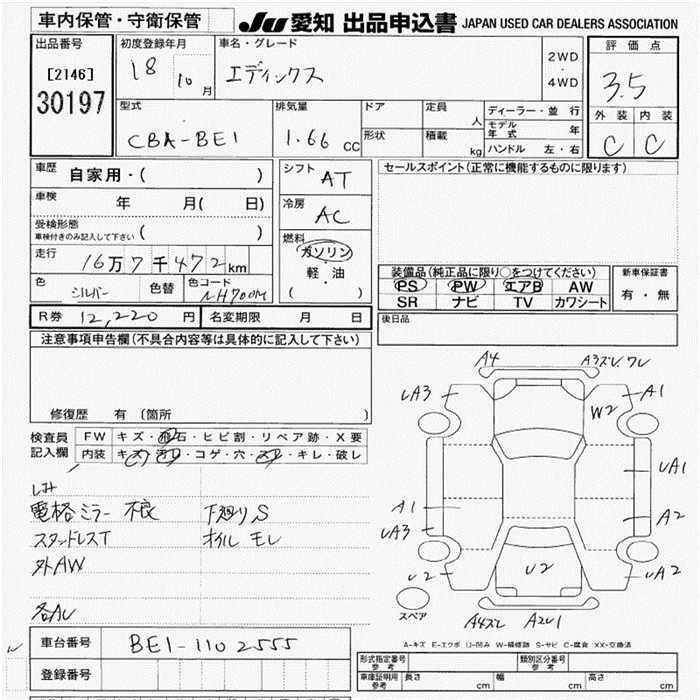 車内保管・守衛保管
JU 愛知 出品申込書 JAPAN USED CAR DEALERS ASSOCIATION
出品番号
[2146]
30197
初度登録年月
18 10 月
車名・グレード
エディックス
2WD
・
4WD
評価点
3.5
外装 内装
C C
型式
CBA-BE1
排気量
1.66 cc
ドア
形状
定員
人
積載
kg
ディーラー・並行
モデル年式 年
ハンドル 左・右
車歴
自家用・( )
車検
年 月( 日)
受検形態
車検付きのみ記入して下さい ( )
走行
16万7千472km
色
シルバー
色替
色コード
NH700M
シフト
AT
冷房
AC
燃料
ガソリン
・
軽・油
( )
セールスポイント(正常に機能するものに限ります)
装備品(純正品に限り○をつけてください)
PS PW エアB AW
SR ナビ TV カワシート
新車保証書
有・無
後日品
R券 12,220 円
名変期限 月 日
注意事項申告欄(不具合内容等は具体的に記入して下さい)
修復歴 有 (箇所 )
検査員記入欄
FW キズ・飛石・ヒビ割・リペア跡・X要
内装 キズ・汚れ・コゲ・穴・スレ・キレ・破レ
シミ
電格ミラー 不良 下廻りS
スタッドレスT オイルモレ
外AW
各ALレ
A4 A3ズレ.ワレ
UA3 A1
W2
UA1
A1 A2
UA3
U2 U2 UA2
スペア
A4ズレ A2U1
A-キズ E-エクボ U-凹み W-補修跡 S-サビ C-腐食 XX-交換済
車台番号 BE1-1102555
登録番号
形式指定番号 参考
類別区分番号 参考
車庫証明用 参考 長さ cm 幅 cm 高さ cm